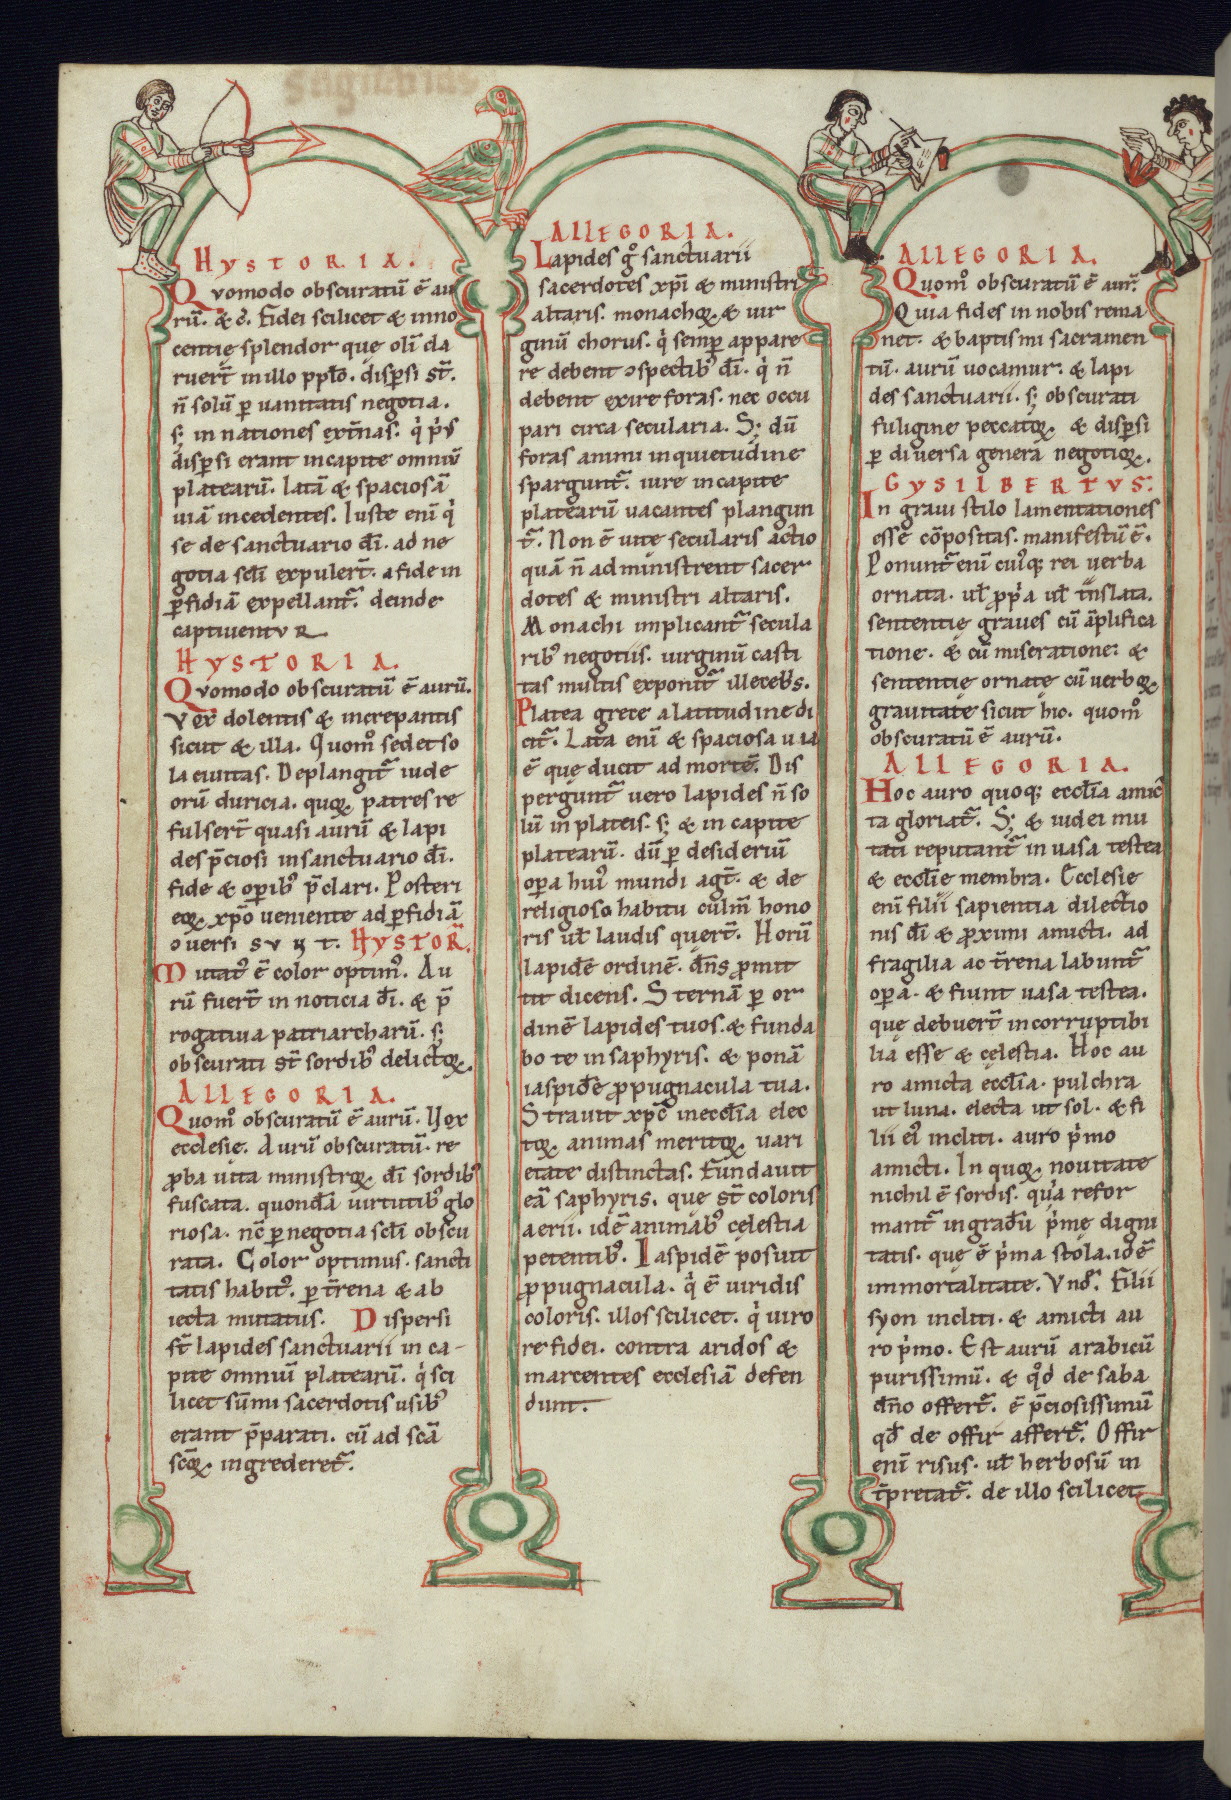 HYSTORIA.
Qvomodo obscuratū ē au
rū. & c̄. Fidei scilicet & inno
centię splendor quę olī da
ruer̄t in illo pplo. disp̄si st̄.
n̄ solū ꝑ uanitatis negotia.
s; in nationes ext̄nas. q̇ p̄us
disp̄si erant in capite omniū
platearū. latā & spaciosā
uiā incedentes. Iuste enī q̇
se de sanctuario dī. ad ne
gotia sc̄li expuler̄t. a fide in
ꝑfidiā expellant᷑. deinde
captiuentvR
HYSTORIA.
Qvomodo obscuratū ē aurū.
Vox dolentis & increpantis
sicut & illa. Quom̊ sedet so
la ciuitas. Deplangit᷑ iude
orū duricia. quoꝝ patres re
fulser̄t quasi aurū & lapi
des p̄ciosi in sanctuario dī.
fide & oꝑib᾽ p̄clari. Posteri
eoꝝ xp̄o ueniente ad ꝑfidiā
ↄuersi svnt. HYSTOR̄.
Mutat᾽ ē color optim᾽. Au
rū fuer̄t in noticia dī. & p̄
rogatiua patriarcharū. s;
obscurati st̄ sordib᾽ delictoꝝ.
ALLEGORIA.
Quom̊ obscuratū ē aurū. Vox
ecclesię. Aurū obscuratū. re
ꝓba uita ministroꝝ dī sordib᾽
fuscata. quondā uirtutib᾽ glo
riosa. nc̄ ꝑ negotia sc̄li obscu
rata. Color optimus. sancti
tatis habit᾽. ꝑ t̄rena & ab
iecta mutatus. Dispersi
st̄ lapides sanctuarii in ca-
pite omniū platearū. q̇ sci
licet sūmi sacerdotis usib᾽
erant p̄parati. cū ad scā
scōꝝ ingrederet᷑.
ALLEGORIA.
Lapides g̊ sanctuarii
sacerdotes xp̄i & ministri
altaris. monachoꝝ & uir
ginū chorus. q̇ semꝑ appare
re debent ↄspectib᾽ dī. q̇ n̄
debent exire foras. nec occu
pari circa secularia. S; dū
foras animi inquietudine
spargunt᷑. iure in capite
platearū uacantes plangun
t᷑. Non ē uitę secularis actio
quā n̄ administrent sacer
dotes & ministri altaris.
Monachi implicant᷑ secula
rib᾽ negotiis. uirginū casti
tas multis exponit᷑ illecebris.
Platea grece a latitudine di
cit᷑. Lata enī & spaciosa uia
ē quę ducit ad mortē. Dis
pergunt᷑ vero lapides n̄ so
lū in plateis. s; & in capite
platearū. dū ꝑ desideriū
oꝑa hui᾽ mundi agt̄. & de
religioso habitu culm̄ hono
ris ul̄ laudis quęr̄t. Horū
lapidē ordinē. dn̄s ꝓmit
tit dicens. Sternā ꝑ or
dinē lapides tuos. & funda
bo te in saphyris. & ponā
iaspidē ꝓpugnacula tua.
Strauit xp̄c in eccl̄ia elec
toꝝ animas meritoꝝ uari
etate distinctas. Fundauit
eā saphyris. quę st̄ coloris
aerii. idē animab᾽ cęlestia
petentib᾽. Iaspidē posuit
ꝓpugnacula. q̇ ē uiridis
coloris. illos scilicet. q̇ uiro
re fidei. contra aridos &
marcentes ecclesiā defen
dunt.
ALLEGORIA.
Quom̊ obscuratū ē aur̄.
Quia fides in nobis rema
net. & baptismi sacramen
tū. aurū uocamur. & lapi
des sanctuarii. s; obscurati
fuligine peccatoꝝ & disp̄si
ꝑ diuersa genera negotioꝝ.
GYSILBERTVS.
In graui stilo lamentationes
esse cōpositas. manifestū ē.
Ponunt᷑ enī cui᾽q; rei uerba
ornata. ul̄ ꝓpa ul̄ tn̄slata.
sententię graues cū āplifica
tione. & cū miseratione. &
sententię ornate cū uerboꝝ
grauitate sicut hic. quom̊
obscuratū ē aurū.
ALLEGORIA.
Hoc auro quoq; eccl̄ia amic
ta gloriat᷑. S; & iudei mu
tati reputant᷑ in uasa testea
& eccl̄ie membra. Ecclesię
enī filii sapientia dilectio
nis dī & ꝓximi amicti. ad
fragilia ac t̄rena labunt᷑
oꝑa. & fiunt uasa testea.
quę debuer̄t incorruptibi
lia esse & cęlestia. Hoc au
ro amicta eccl̄ia. pulchra
ut luna. electa ut sol. & fi
lii ei᾽ incliti. auro p̄mo
amicti. In quoꝝ nouitate
nichil ē sordis. quia refor
mant᷑ in gradū p̄mę digni
tatis. quę ē p̄ma stola. idē
immortalitate. Vnd̄. Filii
syon incliti. & amicti au
ro p̄mo. Est aurū arabicū
purissimū. & qd̊ de saba
dn̄o offert᷑. ē p̄ciosissimū
qd̄ de offir affert᷑. Offir
enī risus. ul̄ herbosū in
t̄pretat᷑. de illo scilicet